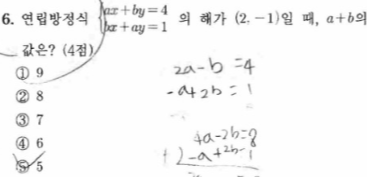 6. 연립방정식 { ax+by=4
bx+ay=1 의 해가 (2, -1)일 때, a+b의
값은? (4점)
① 9
② 8
③ 7
④ 6
⑤ 5
2a-b=4
-a+2b=1
4a-2b=8
+ -a+2b=1